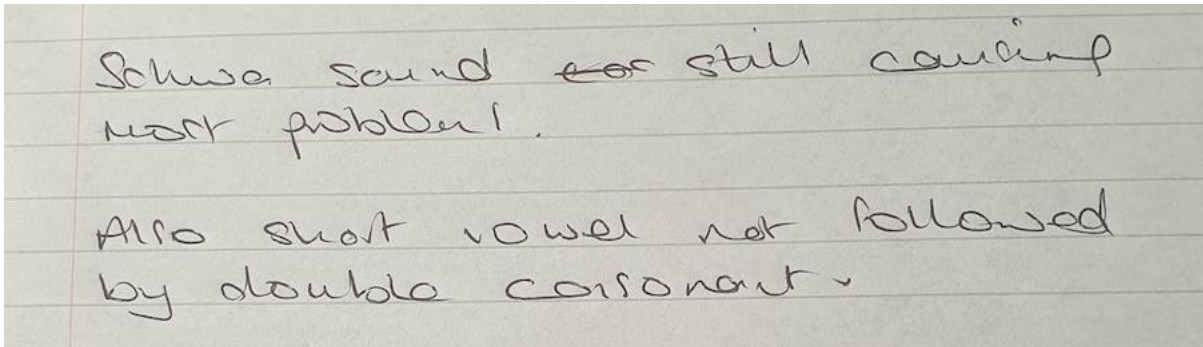 Schwa sound still causing
most problems.
Also short vowel not followed
by double consonant.